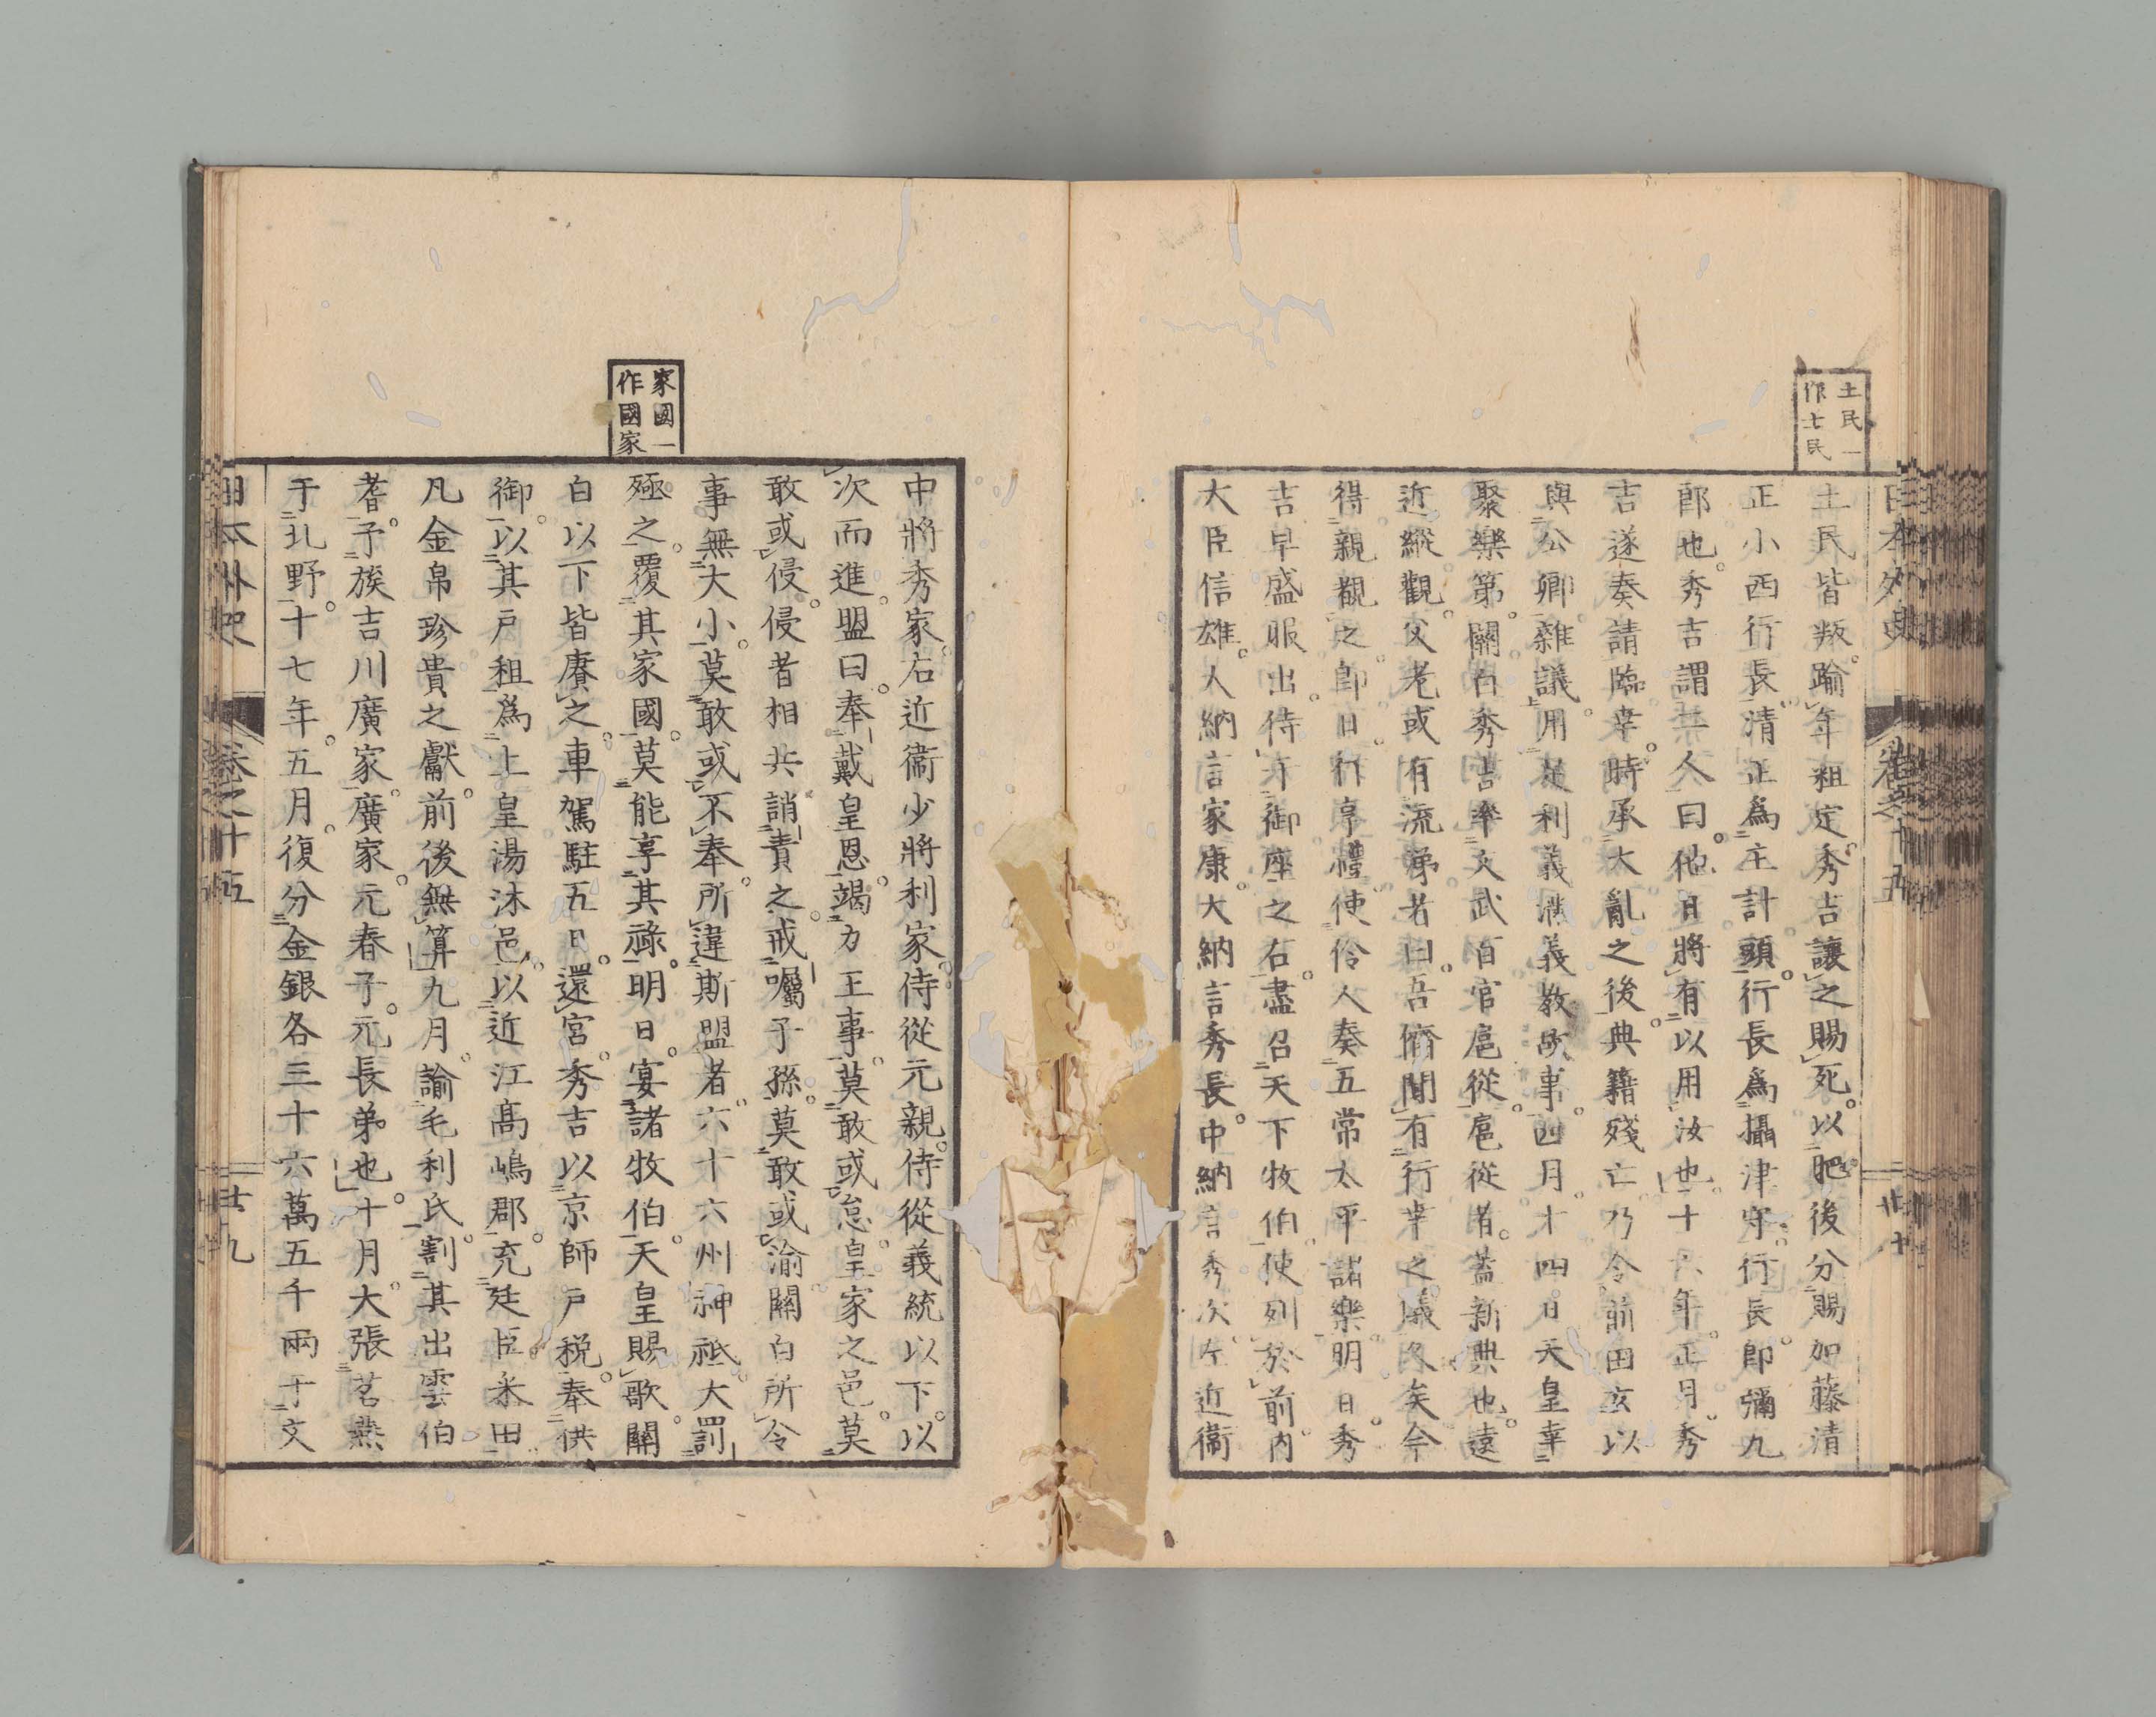 土民一
作士民
日本外史
卷之十五
土民皆叛。踰年粗定。秀吉讓之賜死。以肥後分賜加藤清
正小西行長。清正爲主計頭。行長爲攝津守。行長卽彌九
郎也。秀吉謂二人曰。他日將有以用汝也。十六年正月。秀
吉遂奏請臨幸。時承大亂之後。典籍殘亡。乃令前田玄以
與公卿雜議。用足利義滿義教故事。四月十四日。天皇幸
聚樂第。關白秀吉率文武百官扈從。扈從者。蓋新典也。遠
近縱觀。父老或有流涕者。曰。吾儕聞有行幸之儀久矣。今
得親覩之。卽日。行享禮。使伶人奏五常太平諸樂。明日。秀
吉早盛服出。侍于御座之右。盡召天下牧伯。使列於前。內
大臣信雄。大納言家康。大納言秀長。中納言秀次。左近衞
家國一
作國家
中將秀家。右近衞少將利家。侍從元親。侍從義統以下。以
次而進。盟曰。奉戴皇恩。竭力王事。莫敢或怠。皇家之邑。莫
敢或侵。侵者相共誚責之。戒囑子孫。莫敢或渝。關白所令
事無大小。莫敢或不奉。所違斯盟者。六十六州神祇。大罰
殛之。覆其家國。莫能享其祿。明日。宴諸牧伯。天皇賜歌。關
白以下皆賡之。車駕駐五日。還宮。秀吉以京師戶稅。奉供
御。以其戶租爲上皇湯沐邑。以近江高嶋郡。充廷臣釆田
凡金帛珍貴之獻。前後無算。九月。諭毛利氏。割其出雲伯
耆。予族吉川廣家。廣家。元春子。元長弟也。十月。大張茗燕
于北野。十七年。五月。復分金銀各三十六萬五千兩于文
日本外史
卷之十五
廿九